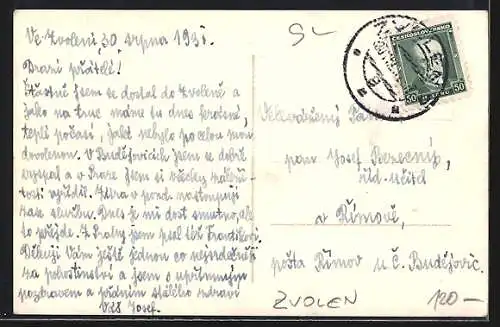 Ve Zvoleni, 30. srpna 1931.
Drazí přátelé!
Šťastně jsem se dostal do Zvolena a
jako na truc máme tu dnes krásné,
teplé počasí, jaké nebylo po celou mou
dovolenou. V Budějovicích jsem se dobře
vyspal a v Praze jsem si všecky záleži-
tosti vyřídil. Zítra v pond. nastoupuji
zase službu. Dnes je mi dost smutno, ale
to přejde. Z Prahy jsem psal též Františkovi
Děkuji Vám ještě jednou co nejsrdečněji
za pohostinství a jsem s upřímným
pozdravem a přáním stálého zdraví
Váš Josef.
SL
ČESKOSLOVENSKO
50 50
Velevážený Pán
pan Josef Bezecný,
říd. učitel
v Římově,
pošta Římov u Č. Budějovic.
ZVOLEN
120-